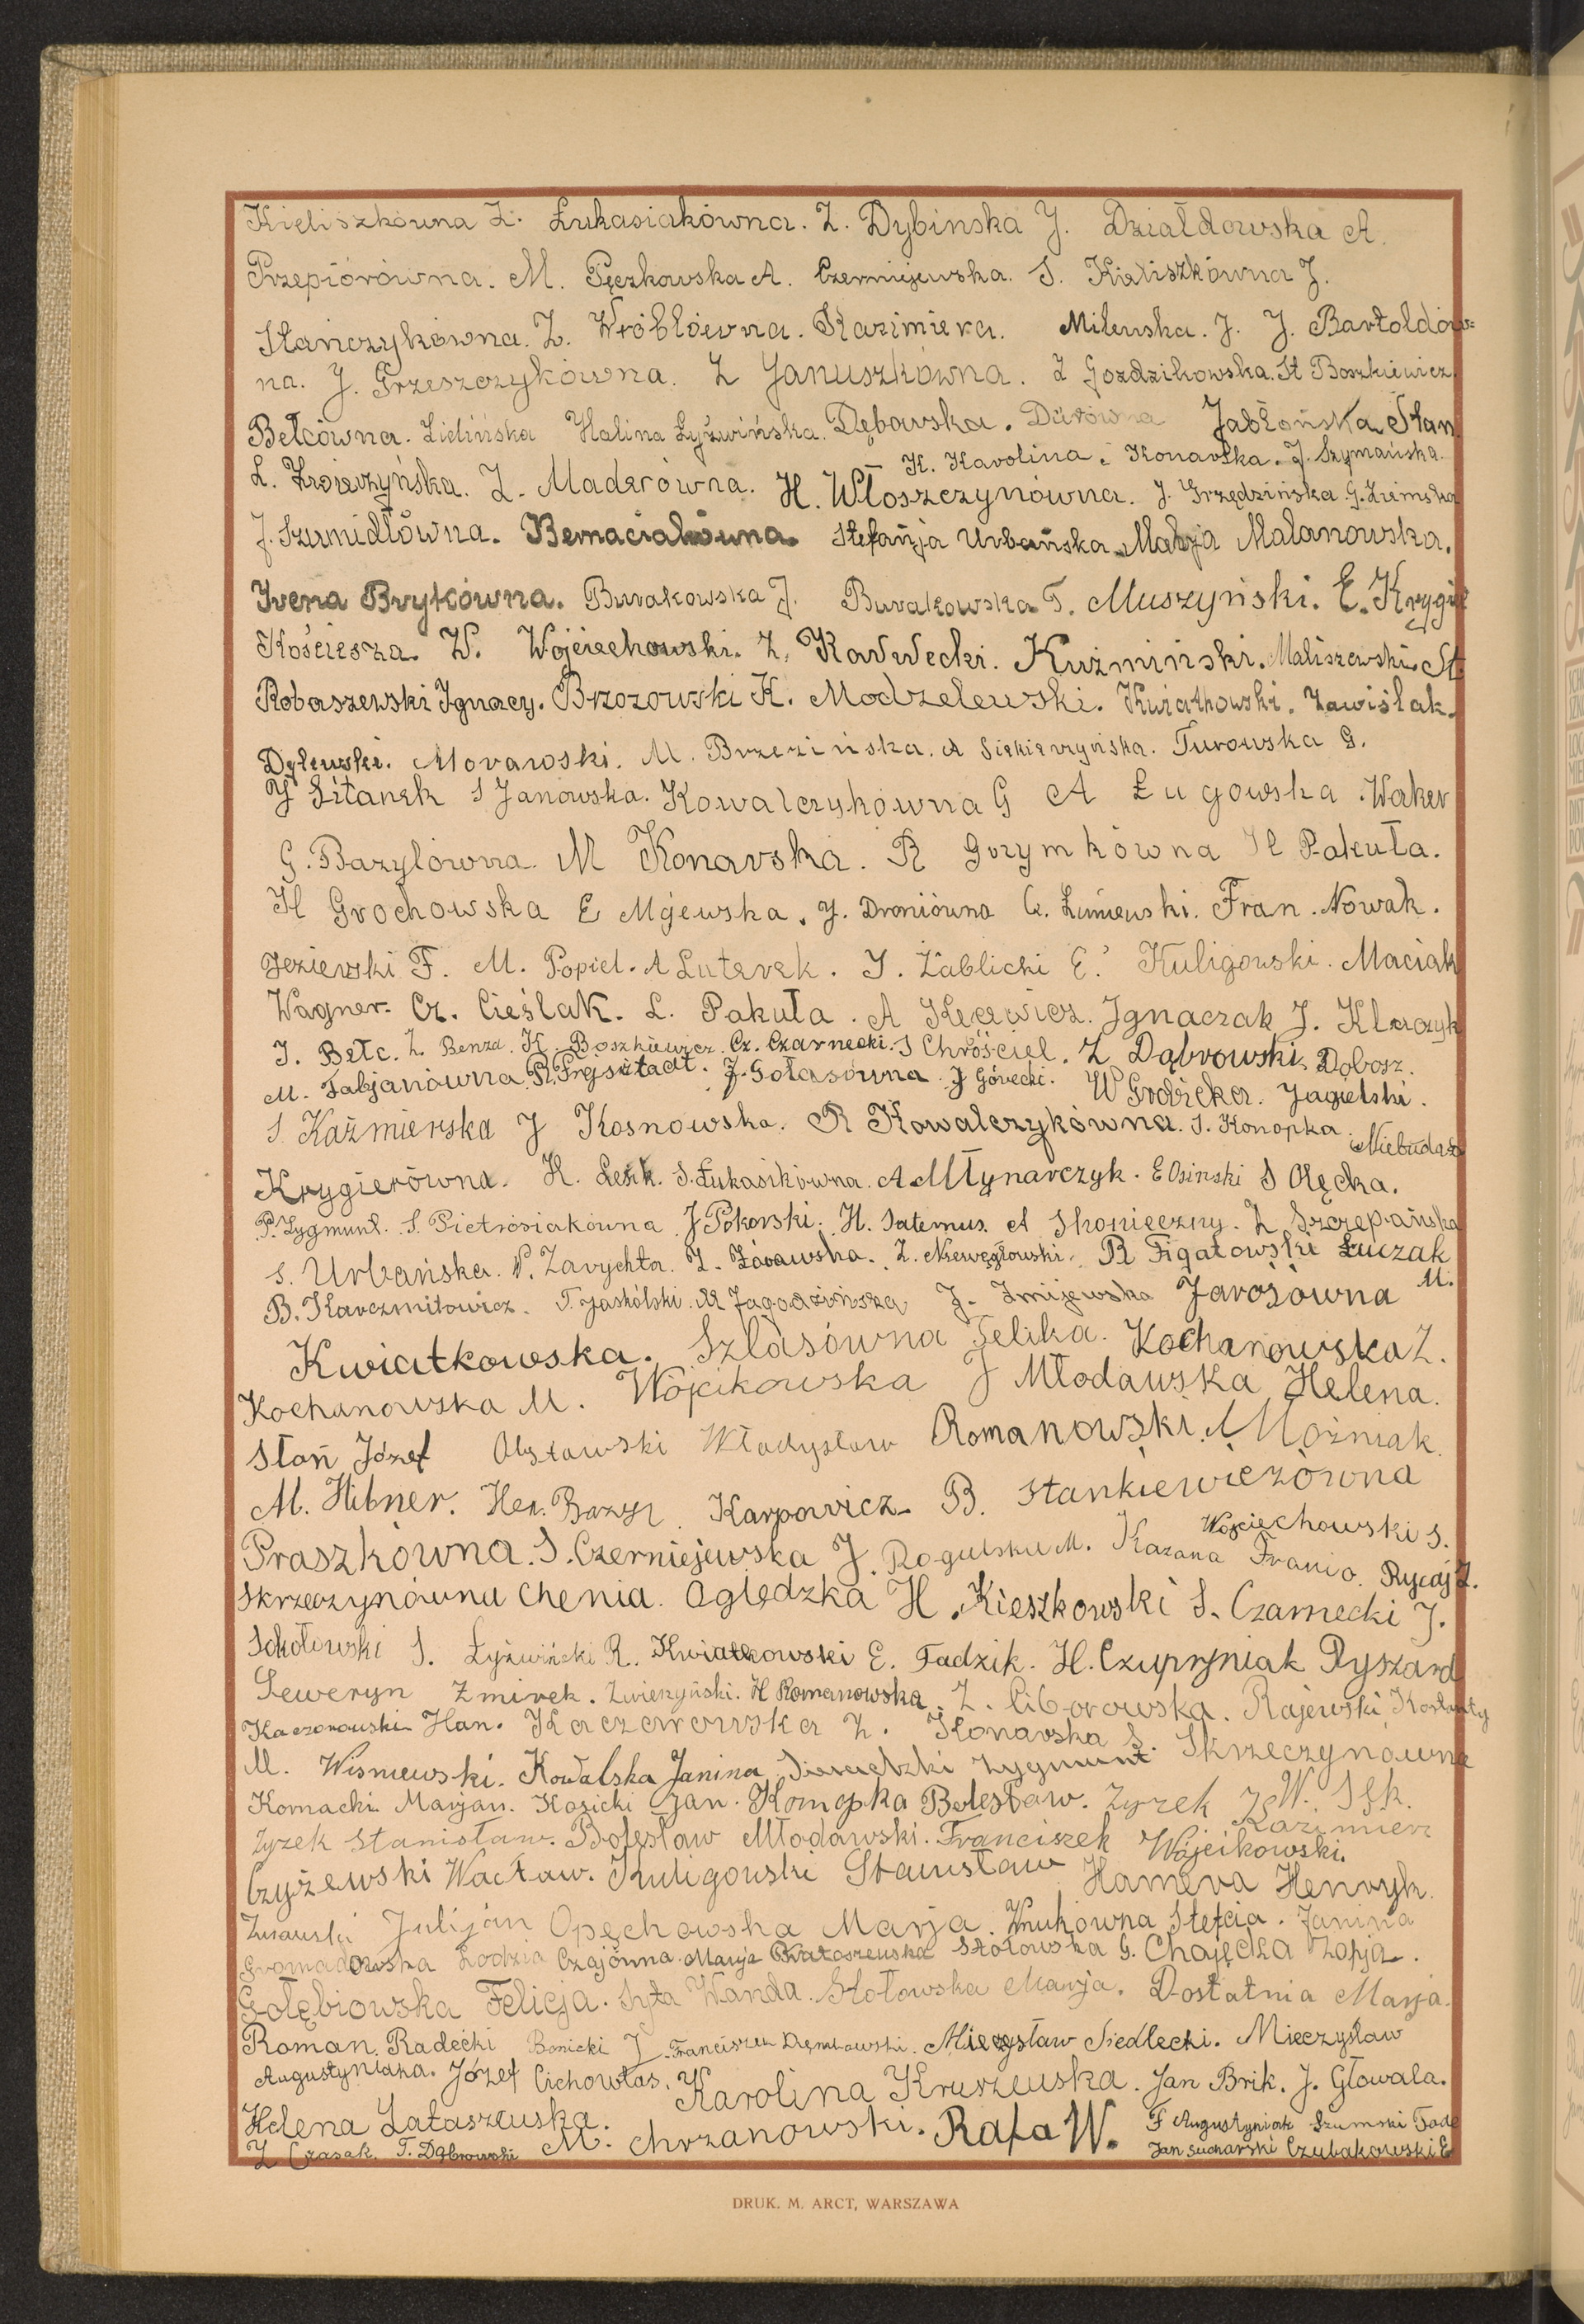 Kieliszkówna Z. Łukasiakówna. Z. Dybinska J. Działdowska A.
Przepiórówna. M. Pęczkowska A. Czerniejewska. S. Kieliszkówna J.
Stańczykówna. Z. Wróblówna. Kazimiera. Milewska. J. J. Bartoldów-
na. J. Grzeszczykówna. Z Januszkówna. Z Gozdzikowska. St Boszkiewicz
Bełcówna. Zielińska Halina Łyżwińska. Dębowska. Jabłońska Stan
K. Karolina. Konarska. J. Szymańska.
L. Z. Maderówna. H. Włoszczynówna. J. Grzędzińska G. Ziemska
J. Szumidłówna. Bernaciakówna. Stefanja Urbańska. Marja Malanowska.
Irena Brykówna. Burakowska J. Burakowska T. Muszyński. E. Krygie
Kościesza. W. Wojciechowski. Z. Kawecki. Kuźminski. Maliszewski St
Robaszewski Ignacy. Brzozowski K. Modzelewski. Kwiatkowski. Zawiślak.
Dylewski. Morawski. M. Brzezińska. A Siekierzyńska. Turowska G.
J Sitanek S Janowska. Kowalczykówna G A Ługowska. Waker
G. Bazylówna. M Konarska. R Grzymkówna H Pakuła.
H Grochowska E Mijewska. J. Droniówna Fran. Nowak.
Jeziewski F. M. Popiel. A Luterek. J. Żablicki E. Kuligowski. Maciak
Wagner. Cz. Cieślak. L. Pakuła. A Ignaczak J. Klarczyk
J. Bełc. Z. Benza. H. Boszkiewicz. Cz. Czarnecki. S Chróściel. Z Dąbrowski. Dobosz.
M. Fabjanówna R. Frejsztadt. J. Gołasówna. J Górecki. W Grodzicka. Jagielski.
S. Kaźmierska J Kosnowska. R Kowalczykówna. S. Konopka. Niebudas
Krygierówna. H. Lesik. S. Łukasikówna. A. Młynarczyk. E Osinski S Olęcka.
P. Zygmunt. S. Pietrosiakówna J Pokorski. H. Saternus. A Skonieczny. Z Szczepańska
S. Urbańska. P. Zarychta. Z. Żórawska. Z. Niewęgłowski. R Figatowski Łuczak
B. Karczmitowicz. T. Jaskólski. M Jagodzińska J. Żmijewska Jarosówna M.
Kwiatkowska. Szlasówna Felika. Kochanowska Z.
Kochanowska M. Wójcikowska J Młodawska Helena.
Stań Józef Olszawski Władysław Romanowski. M Woźniak.
M. Hibner. Hen. Bazyl Karpowicz B. Stankiewiczówna
Praszkówna. S. Czerniejewska J. Rogulska M. Kazana Franio. Wojciechowski S. Rycaj Z.
Skrzeczynówna Chenia. Oględzka H. Kieszkowski S. Czarnecki J.
Sokołowski S. Łyżwiński R. Kwiatkowski E. Tadzik. H. Czupryniak Ryszard
Seweryn Żmirek. Zwierzyński. H Romanowska. Z. Ciborowska. Rajewski Kostanty
Kaczorowski Han. Kaczorowska Z. Konarska S. Skrzeczynówna
M. Wisniewski. Kowalska Janina. Zygmunt
Kornacki Marjan. Kozicki Jan. Konopka Bolesław. Zyzek W. Sęk.
Kazimierz
Zyzek Stanisław. Bolesław Młodawski. Franciszek Wójcikowski.
Czyżewski Wacław. Kuligowski Stanisław Hamera Henryk.
Żurawski Julijan Opęchowska Marja. Wnukówna Stefcia. Janina
Gromadowska Lodzia Czajówna. Marja Bratoszewska Stołowska G. Chajęcka Zofja.
Gołębiowska Felicja. Syta Wanda. Stołowska Marja. Dostatnia Marja.
Roman Radecki Bonicki J. Franciszek Dembowski. Mieczysław Siedlecki. Mieczysław
Augustyniaka. Józef Cichowlas. Karolina Kruszewska. Jan Brik. J. Głowala.
Helena Łataszewska. M. Chrzanowski. Rafa W. F Augustyniak Szumski Tade
Z Czasak. T. Dąbrowski Jan Sucharski Czubakowski E
DRUK. M. ARCT, WARSZAWA